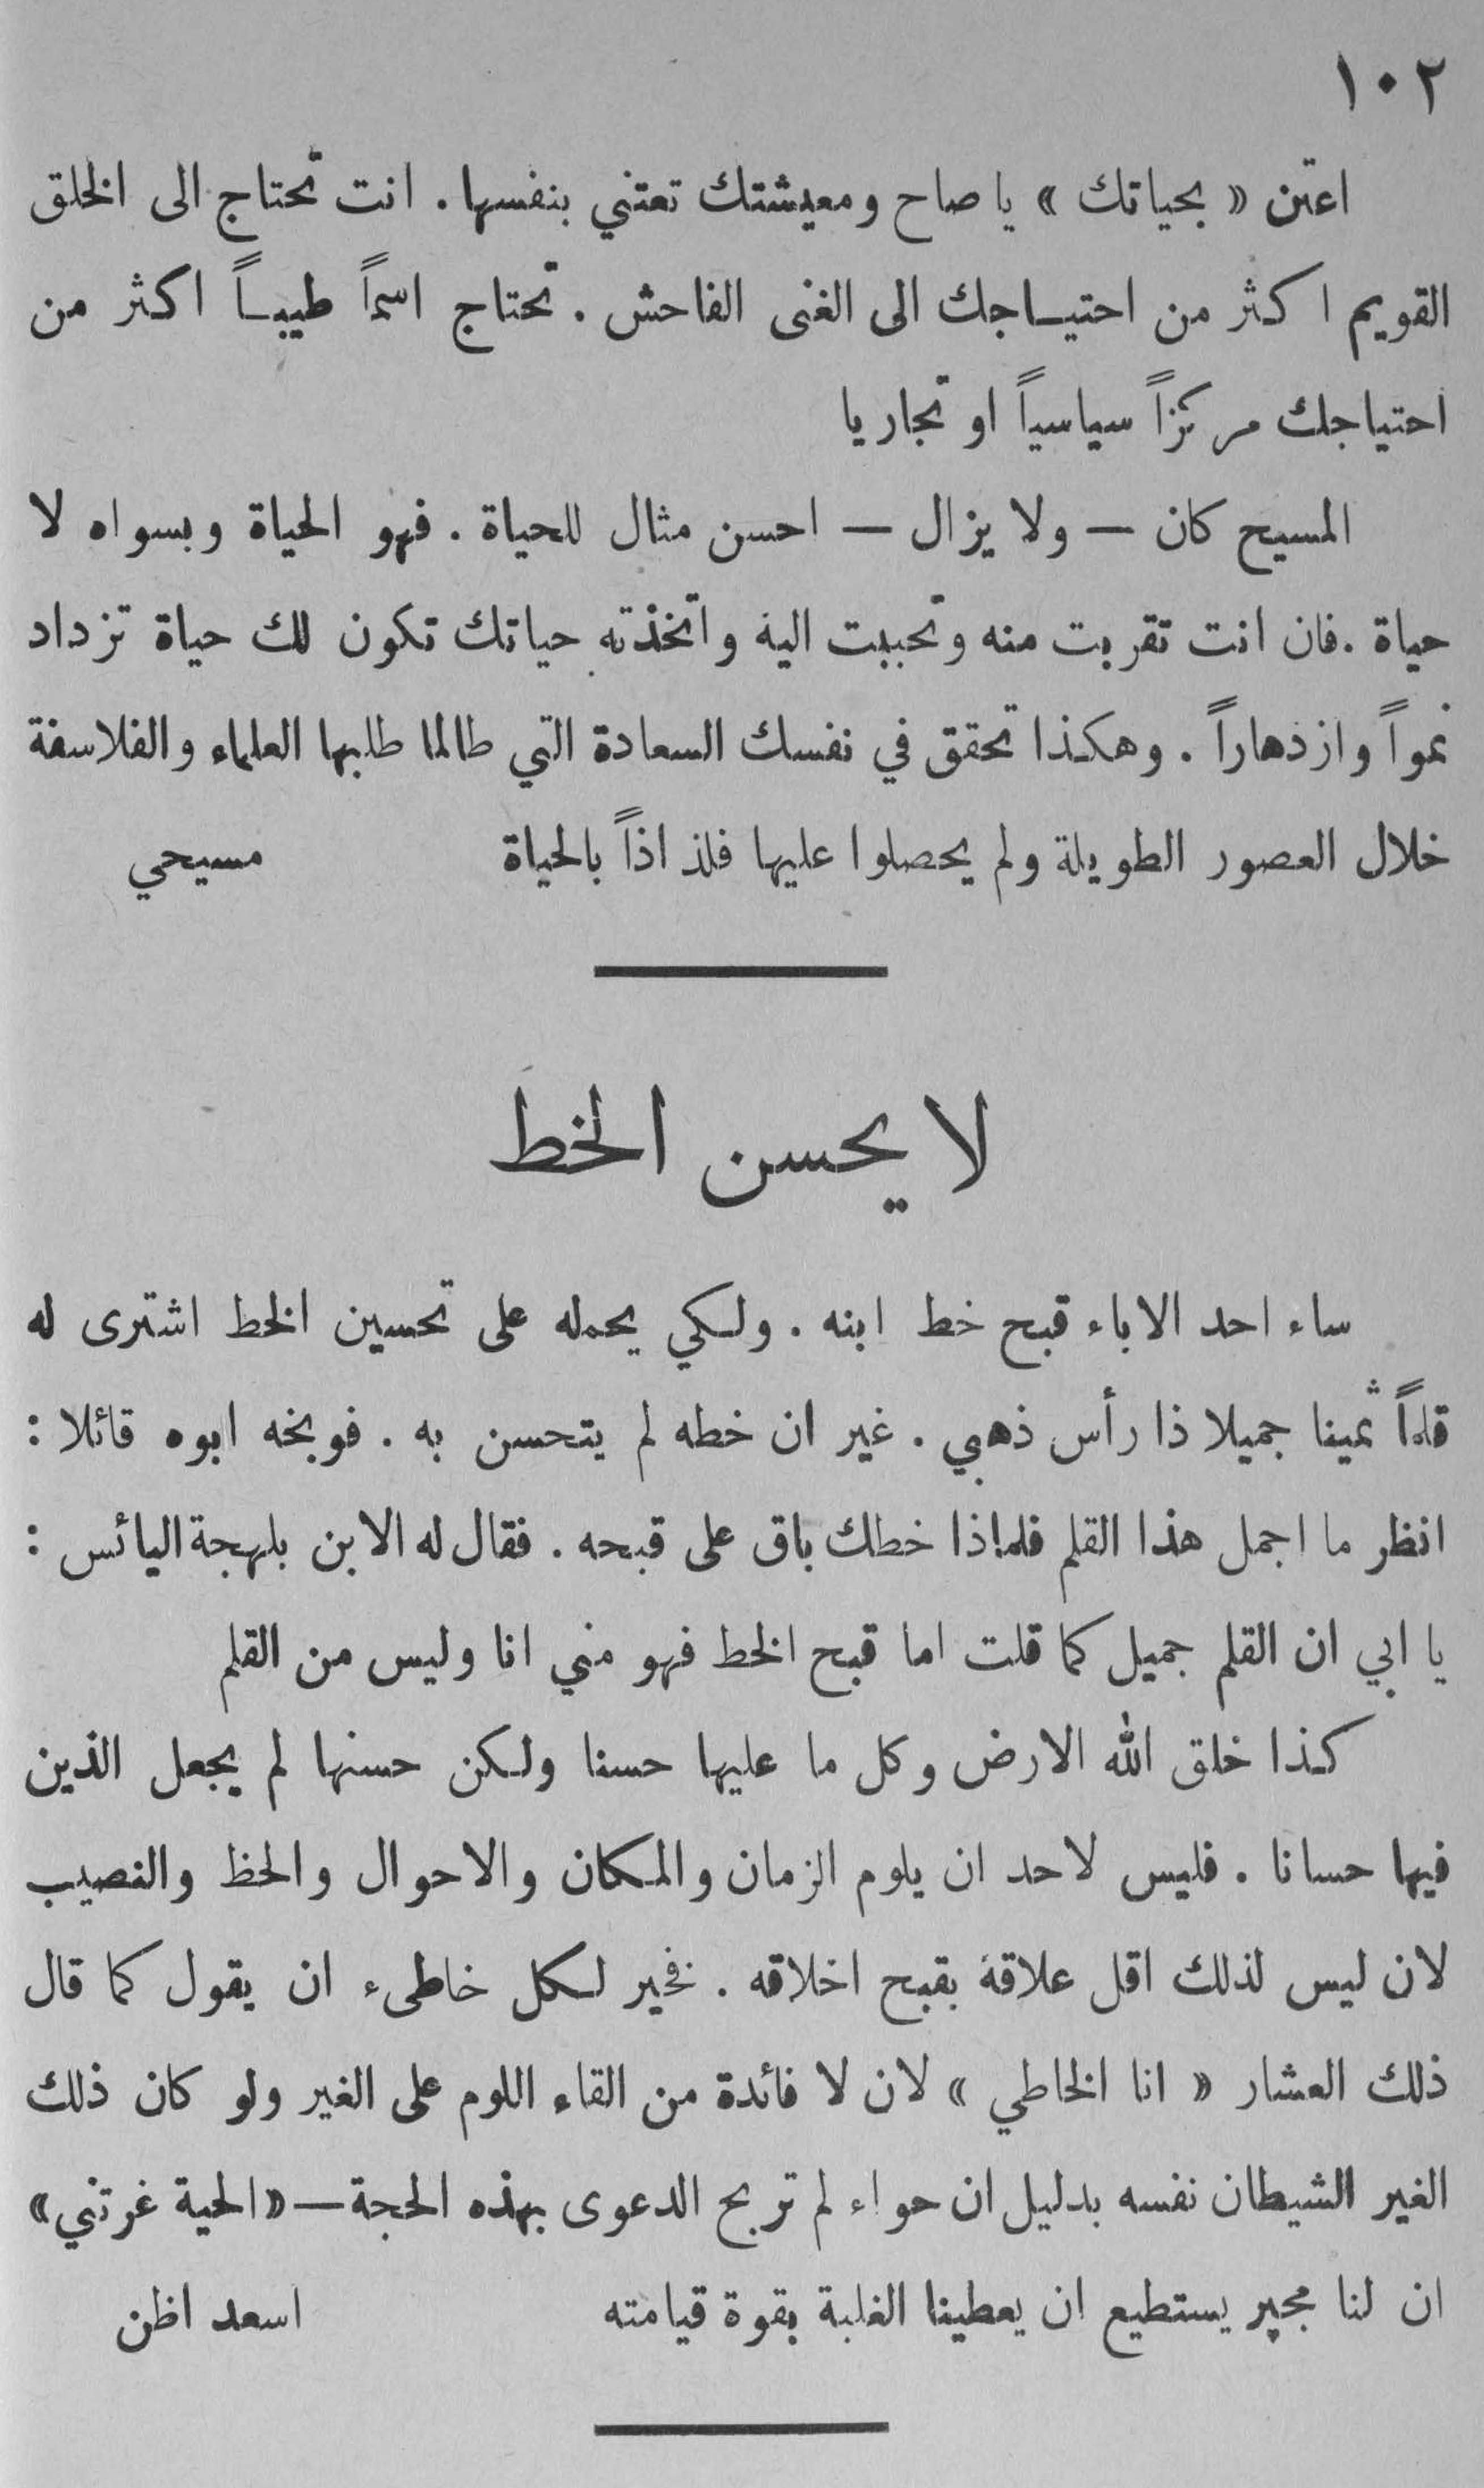 ١٠٢
اعتن « بحياتك » يا صاح ومعيشتك تعتني بنفسها . انت تحتاج الى الخلق
القويم اكثر من احتياجك الى الغنى الفاحش . تحتاج اسماً طيباً اكثر من
احتياجك مركزاً سياسياً او تجاريا
المسيح كان — ولا يزال — احسن مثال للحياة . فهو الحياة وبسواه لا
حياة . فان انت تقربت منه وتحببت اليه واتخذته حياتك تكون لك حياة تزداد
نمواً وازدهاراً . وهكذا تحقق في نفسك السعادة التي طالما طلبها العلماء والفلاسفة
خلال العصور الطويلة ولم يحصلوا عليها فلذ اذاً بالحياة مسيحي
لا يحسن الخط
ساء احد الاباء قبح خط ابنه . ولكي يحمله على تحسين الخط اشترى له
قلماً ثمينا جميلا ذا رأس ذهبي . غير ان خطه لم يتحسن به . فوبخه ابوه قائلا :
انظر ما اجمل هذا القلم فلماذا خطك باق على قبحه . فقال له الابن بلهجة اليائس :
يا ابي ان القلم جميل كما قلت اما قبح الخط فهو مني انا وليس من القلم
كذا خلق الله الارض وكل ما عليها حسنا ولكن حسنها لم يجعل الذين
فيها حسانا . فليس لاحد ان يلوم الزمان والمكان والاحوال والحظ والنصيب
لان ليس لذلك اقل علاقة بقبح اخلاقه . فخير لكل خاطىء ان يقول كما قال
ذلك العشار « انا الخاطي » لان لا فائدة من القاء اللوم على الغير ولو كان ذلك
الغير الشيطان نفسه بدليل ان حواء لم تربح الدعوى بهذه الحجة — « الحية غرتني »
ان لنا مجير يستطيع ان يعطينا الغلبة بقوة قيامته اسعد اظن